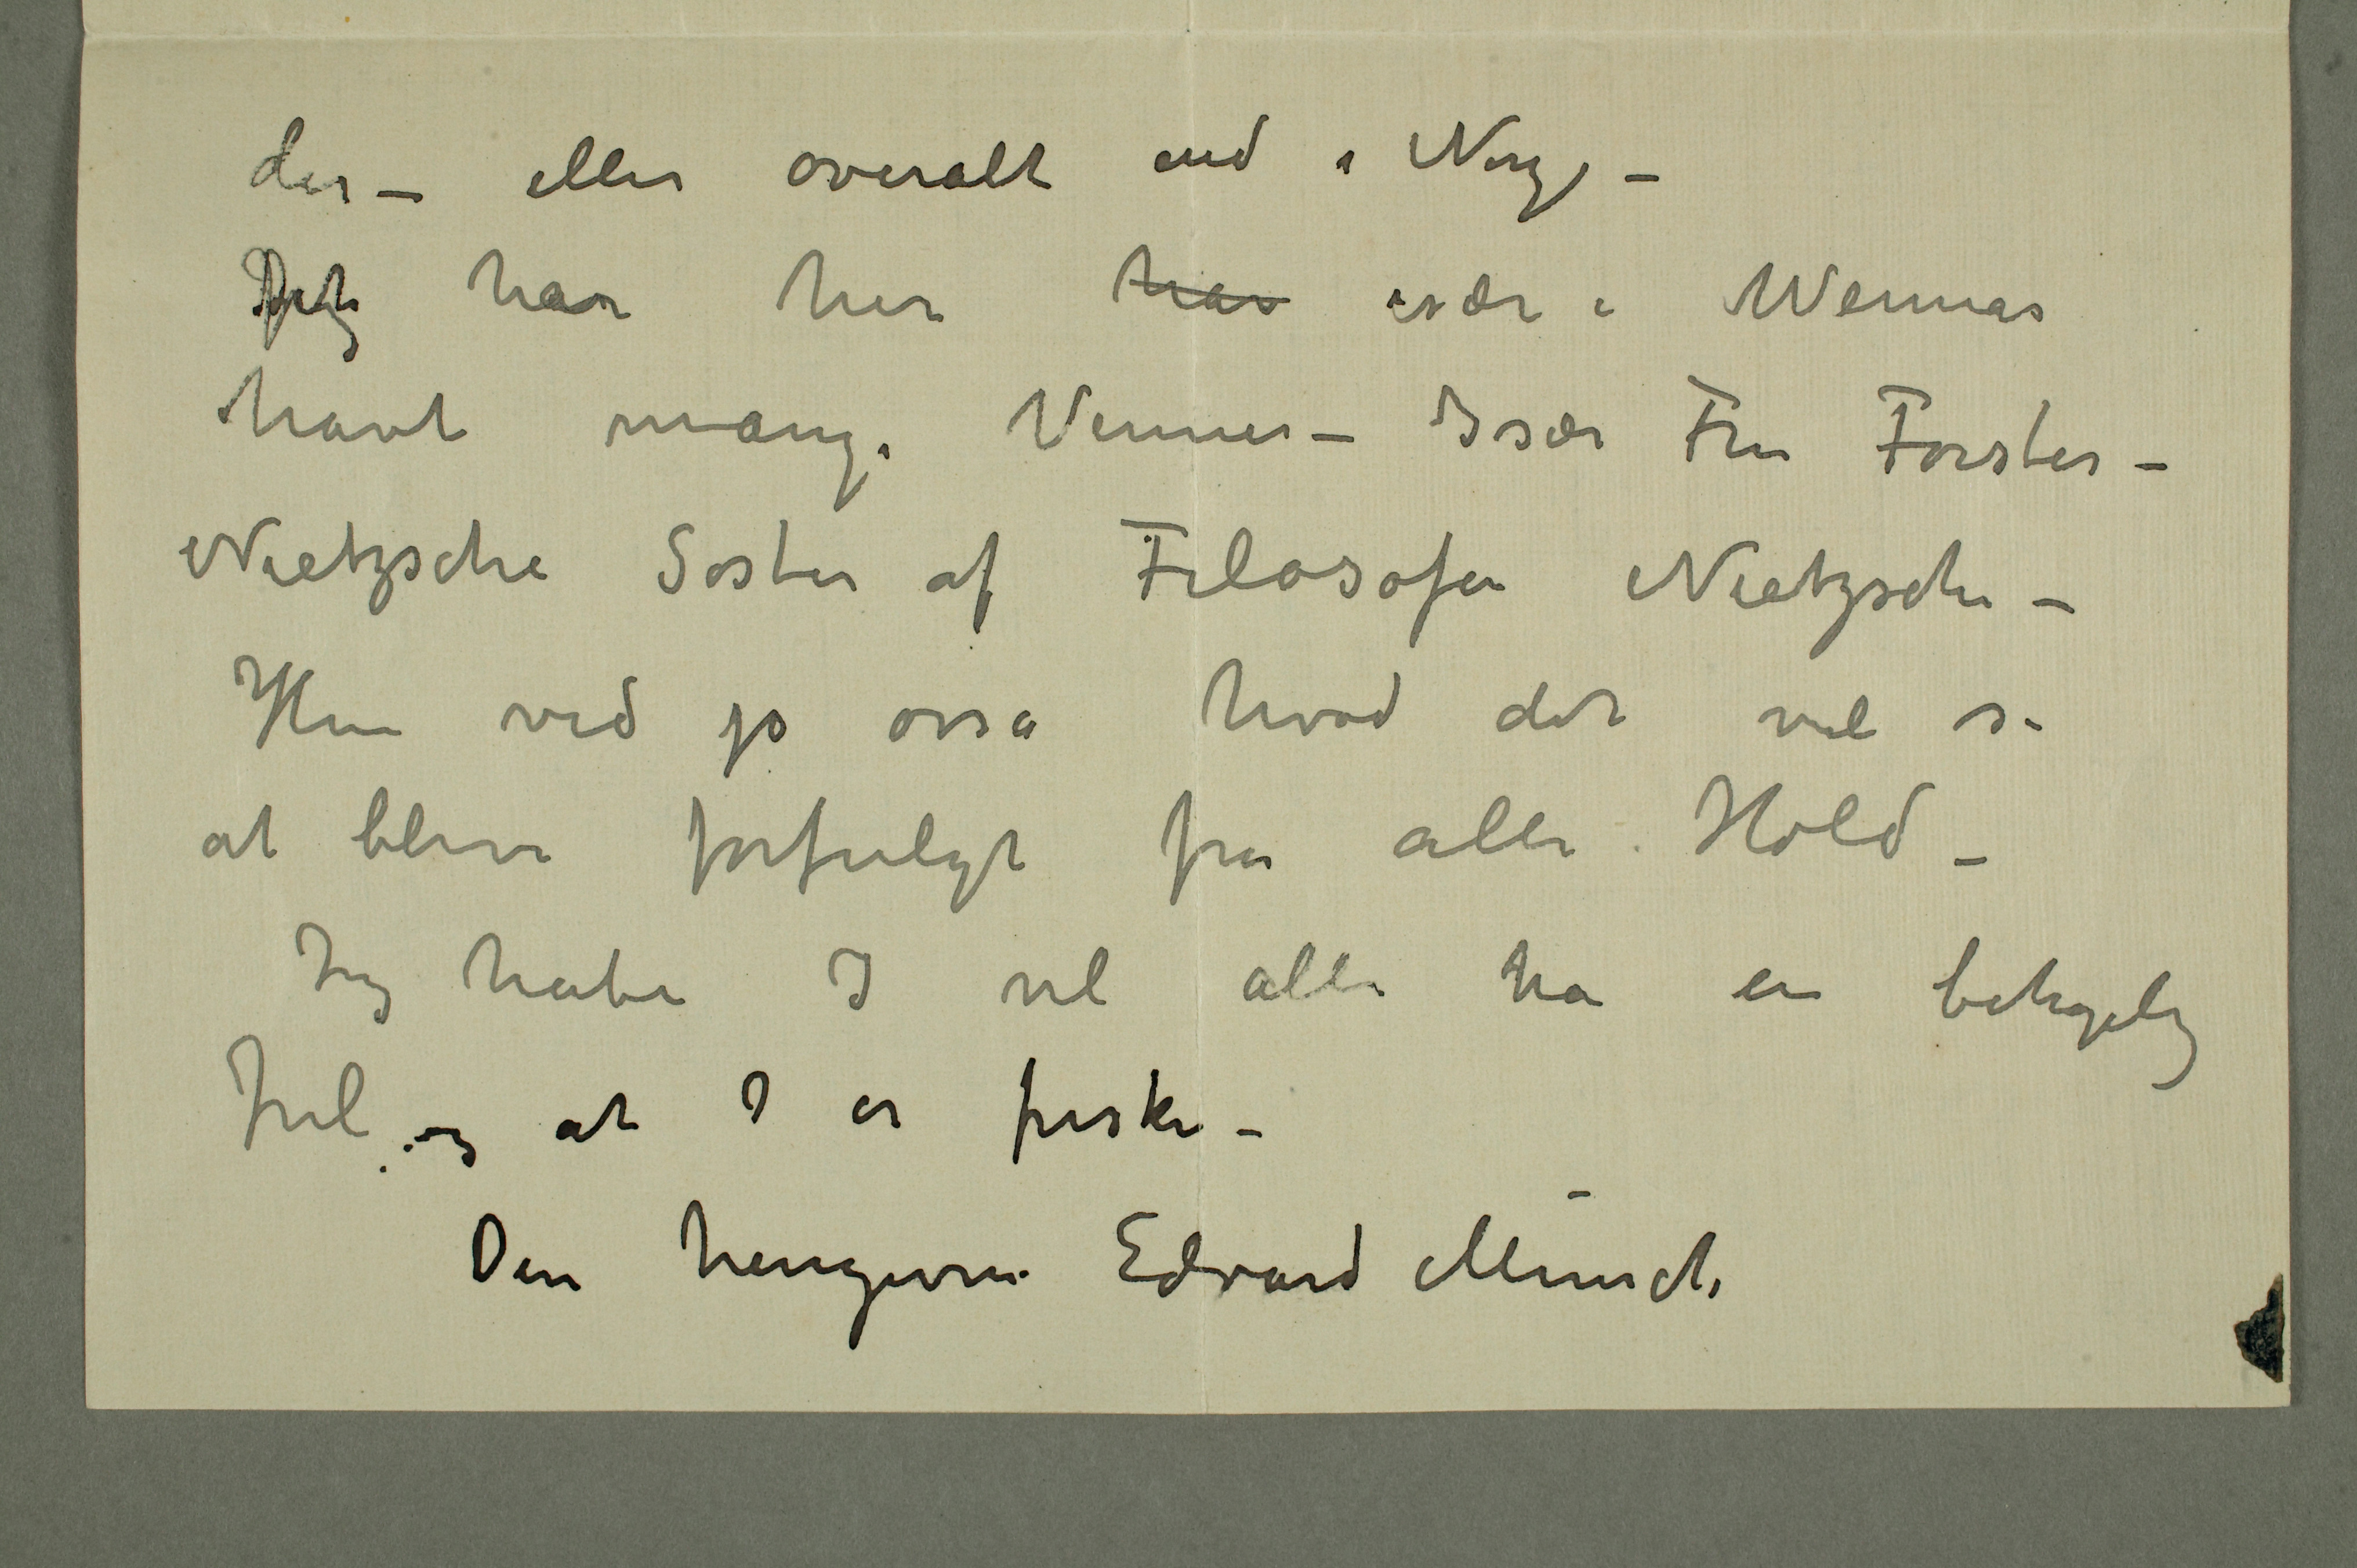 der – eller overalt end i Norge –
Jeg har her har især i Weimar
havt mange Venner – Især Fru Førster –
Nietzsche Søster af Filosofen Nietzsche –
Hun ved jo osså hvad det vil si
at blive forfulgt fra alle Hold –
Jeg håber I vil alle ha en behagelig
Jul og at I er friske –
Din hengivne Edvard Munch